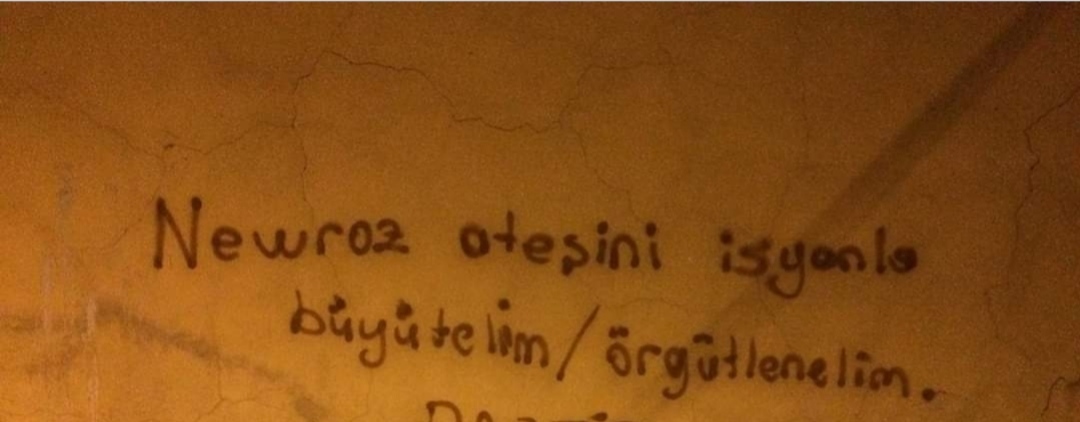 Newroz ateşini isyanla
büyütelim/örgütlenelim.